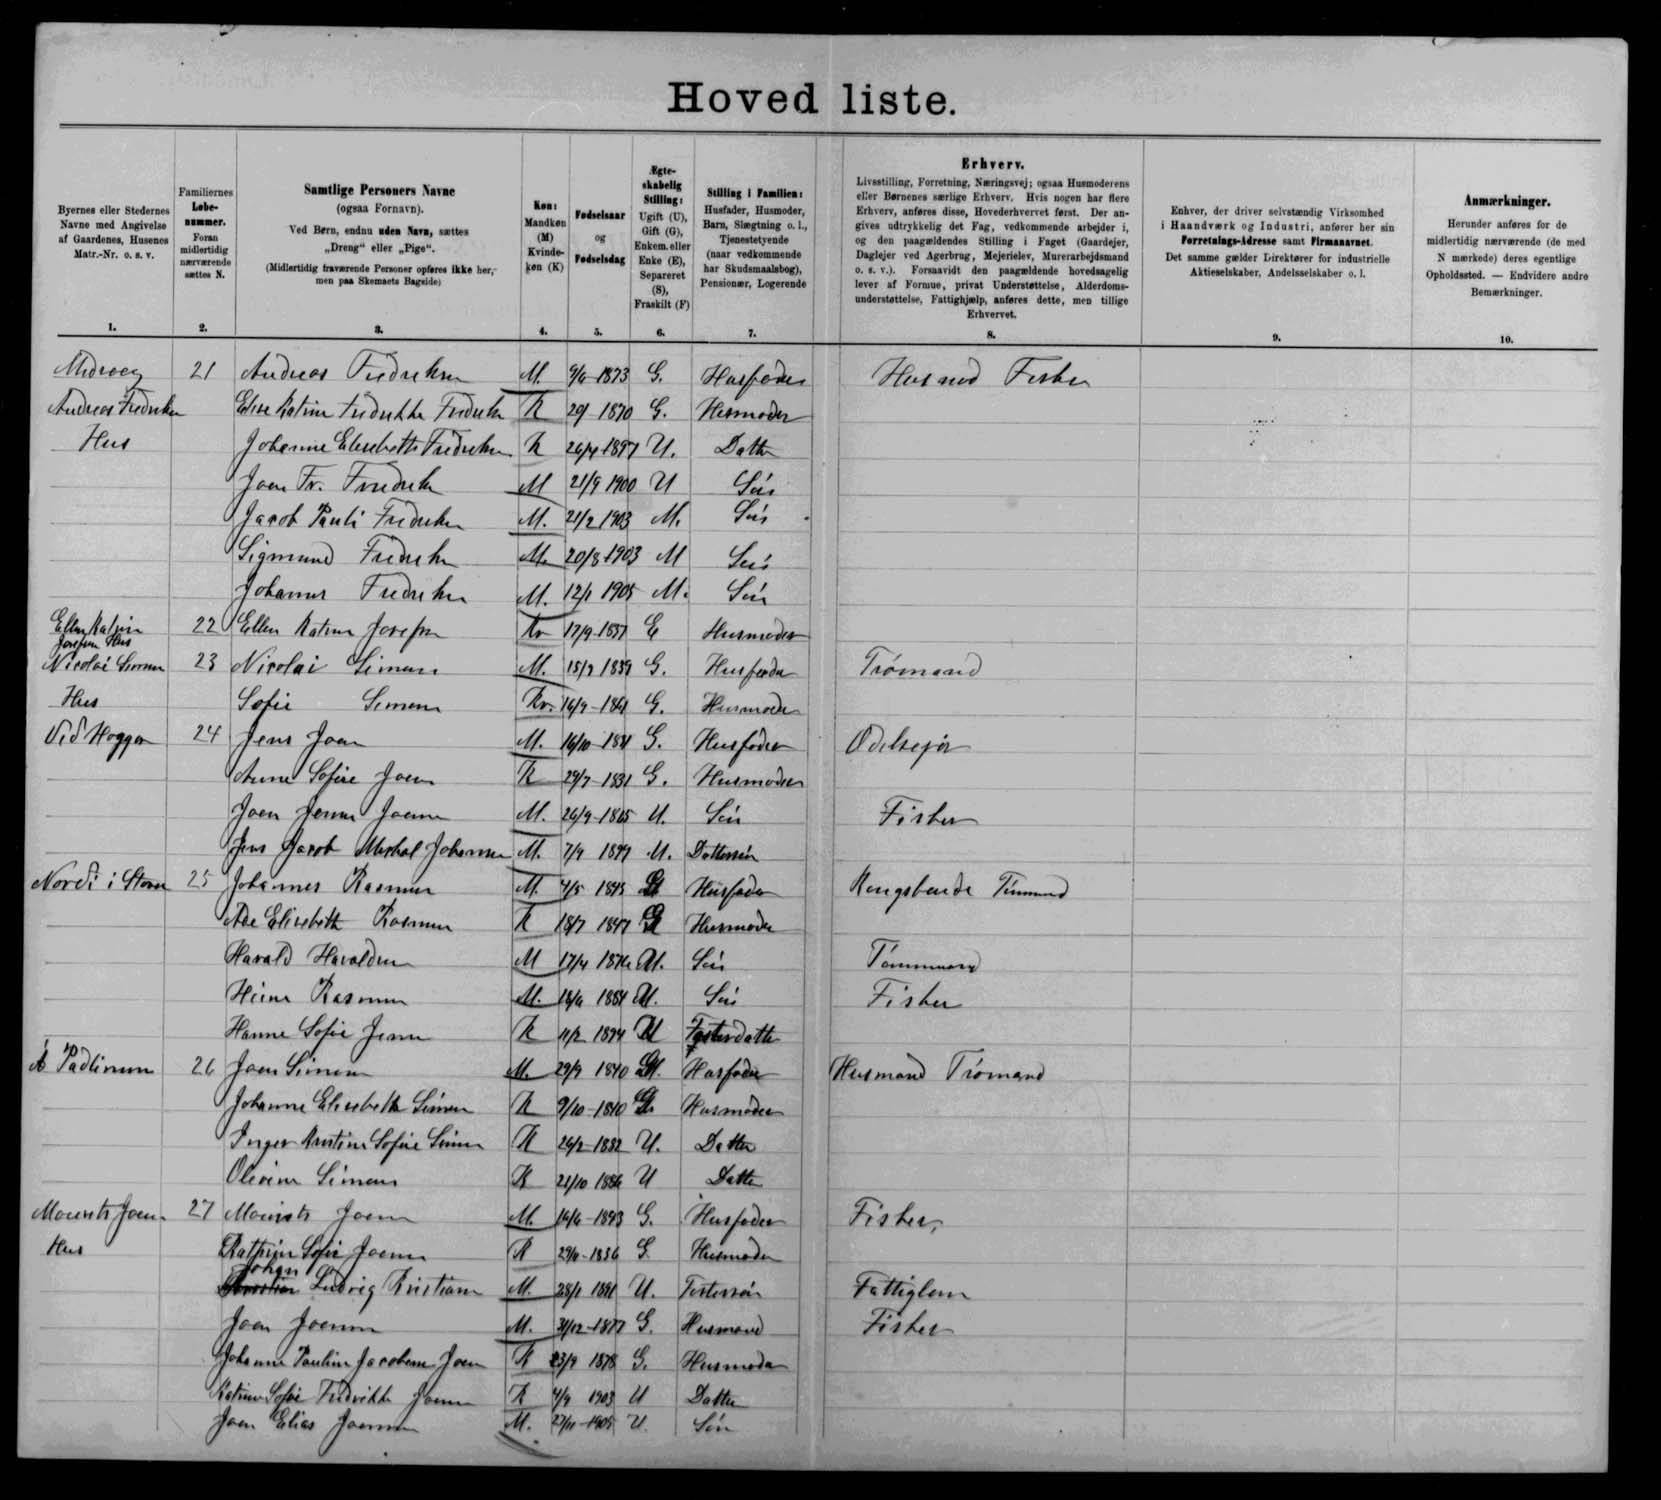 Hoved liste.
Byernes eller Stedernes Navne med Angivelse af Gaardenes, Husenes Matr.-Nr. o. s. v.
Familiernes Løbe-nummer. Foran midlertidig nærværende sættes N.
Samtlige Personers Navne (ogsaa Fornavn). Ved Børn, endnu uden Navn, sættes „Dreng“ eller „Pige“. (Midlertidig fraværende Personer opføres ikke her, men paa Skemaets Bagside)
Køn: Mandkøn (M) Kvinde-køn (K)
Fødselsaar og Fødselsdag
Ægte-skabelig Stilling: Ugift (U), Gift (G), Enkem. eller Enke (E), Separeret (S), Fraskilt (F)
Stilling i Familien: Husfader, Husmoder, Barn, Slægtning o. l., Tjenestetyende (naar vedkommende har Skudsmaalsbog), Pensionær, Logerende
Erhverv. Livsstilling, Forretning, Næringsvej; ogsaa Husmoderens eller Børnenes særlige Erhverv. Hvis nogen har flere Erhverv, anføres disse, Hovederhvervet først. Der angives udtrykkelig det Fag, vedkommende arbejder i, og den paagældendes Stilling i Faget (Gaardejer, Daglejer ved Agerbrug, Mejerielev, Murerarbejdsmand o. s. v.). Forsaavidt den paagældende hovedsagelig lever af Formue, privat Understøttelse, Alderdoms-understøttelse, Fattighjælp, anføres dette, men tillige Erhvervet.
Enhver, der driver selvstændig Virksomhed i Haandværk og Industri, anfører her sin Forretnings-Adresse samt Firmanavnet. Det samme gælder Direktører for industrielle Aktieselskaber, Andelsselskaber o. l.
Anmærkninger. Herunder anføres for de midlertidig nærværende (de med N mærkede) deres egentlige Opholdssted. — Endvidere andre Bemærkninger.
1. 2. 3. 4. 5. 6. 7. 8. 9. 10.
21 Andreas Fredriksen M. 1873 G. Husfader Husmd Fisker
Andreas Fredriksen Elise Katrine Fredrikke Fredriksen K 1870 G. Husmoder
Hus Johanne Elisebeth Fredriksen K 26/4-1897 U. Datter
Joen Fr. Fredriksen M 21/9 1900 U Sön
Jacob Pauli Fredriksen M. 21/2 1903 M. Sön
Sigmund Fredriksen M. 20/8 1903 M Sön
Johannes Fredriksen M. 12/1 1905 M. Sön
Ellen Katrine Josefsen Hus 22 Ellen Katrine Josefsen Kv 17/9-1837 E Husmoder
Nicolai Simonsen 23 Nicolai Simonsen M. 1839 G. Husfader Trømand
Hus Sofie Simonsen Kv. 16/9-1841 G. Husmoder
Við Heggen 24 Jens Joensen M. 16/10-1831 G. Husfader Odelsejer
Anne Sofie Joensen K 29/7-1831 G. Husmoder
Joen Jensen Joensen M. 26/9-1865 U. Sön Fisker
Jens Jacob Johansen M. 7/9 1899 U. Dattersön
Norði i Stovu 25 Johannes Rasmussen M. 4/5 1845 G Husfader Kongsbonde
Ane Elisebeth Rasmussen K 18/7 1847 G Husmoder
Harald Haraldsen M 17/4 U. Sön Tømmermand
Heine Rasmussen M. 18/6 1884 U. Sön Fisker
Hanne Sofie Jensen K 11/2 1894 U Fosterdatter
26 Joen Simonsen M. 29/9 1840 G. Husfader Husmand Trømand
Johanne Elisebeth Simonsen K 9/10-1840 G. Husmoder
Inger Kristine Sofie Simonsen K 26/2-1882 U. Datter
Olevine Simonsen K 21/10 1886 U Datter
Mourits Joensen 27 Mourits Joensen M. 16/6-1843 G. Husfader Fisker,
Hus Kathrine Sofie Joensen K 29/6-1836 G. Husmoder
Johan Ludvig Kristiansen M. 28/1 1891 U. Fostersön Fattiglem
Joen Joensen M. 31/12-1877 G. Husmand Fisker
Johanne Pauline Jacobine Joensen K 23/9 1878 G. Husmoder
Katrine Sofie Fredrikke Joensen K 4/9 1903 U Datter
Joen Elias Joensen M. 27/11-1905 U. Sön